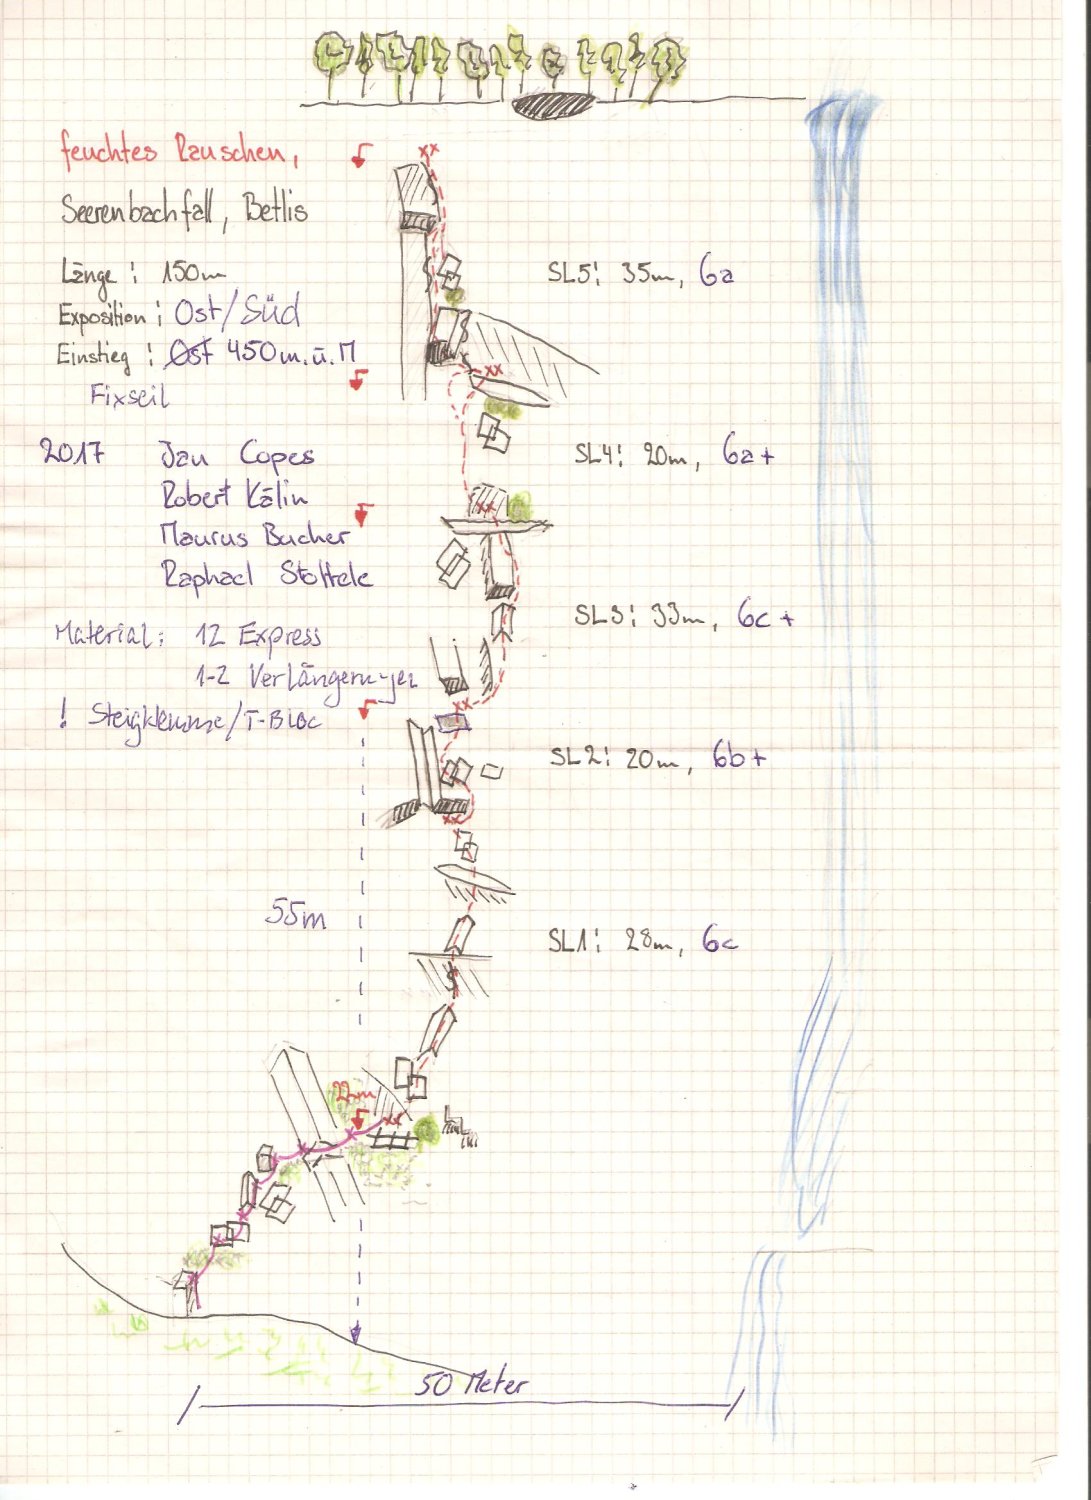 feuchtes Rauschen,
Seerenbachfall, Betlis
Länge: 150m
Exposition: Ost/Süd
Einstieg: Ost 450m.ü.M
Fixseil
2017 Jan Copes
Robert Kälin
Maurus Bucher
Raphael
Material: 12 Express
1-2 Verlängerungen
! Steigklemme/T-Bloc
SL5: 35m, 6a
SL4: 20m, 6a+
SL3: 33m, 6c+
SL2: 20m, 6b+
55m
SL1: 28m, 6c
22m
50 Meter